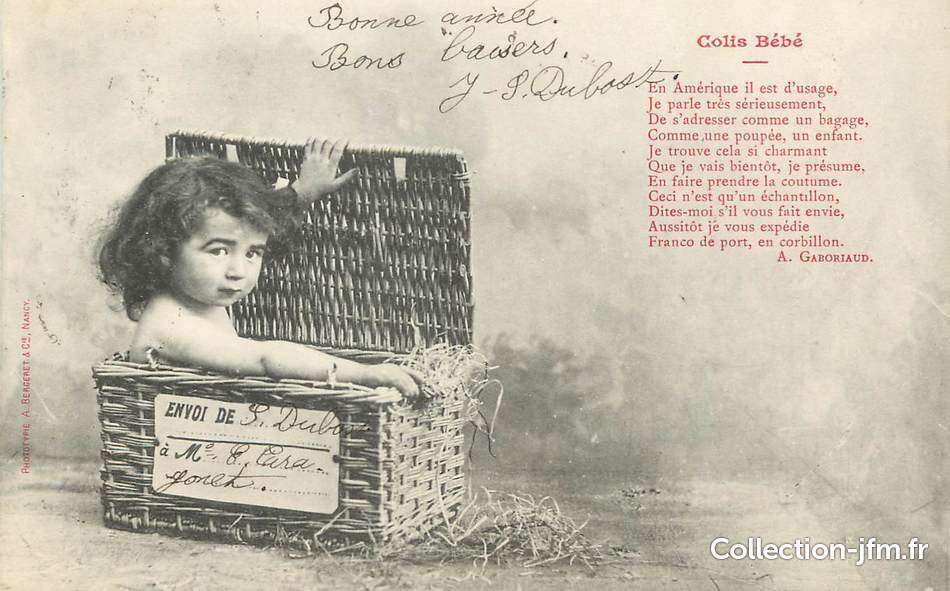 Bonne année.
Bons baisers.
J-S. Dubost.
Colis Bébé
En Amérique il est d'usage,
Je parle très sérieusement,
De s'adresser comme un bagage,
Comme une poupée, un enfant.
Je trouve cela si charmant
Que je vais bientôt, je présume,
En faire prendre la coutume.
Ceci n'est qu'un échantillon,
Dites-moi s'il vous fait envie,
Aussitôt je vous expédie
Franco de port, en corbillon.
A. GABORIAUD.
PHOTOTYPIE A. BERGERET & Cie, NANCY.
ENVOI DE S. Dubost
à
Collection-jfm.fr